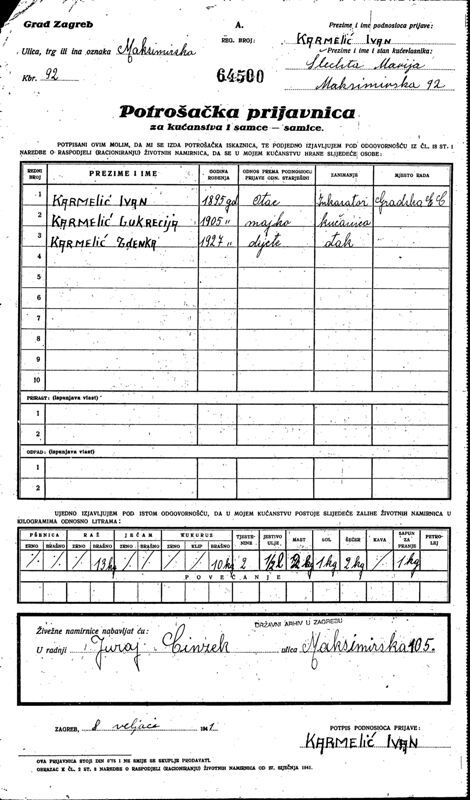 Grad Zagreb
A.
REG. BROJ:
64500
Prezime i ime podnosioca prijave:
KARMELIĆ IVAN
Prezime i ime i stan kućevlasnika:
Marija
Maksimirska 92
Ulica, trg ili ina oznaka Maksimirska
Kbr. 92
Potrošačka prijavnica
za kućanstva i samce — samice.
POTPISANI OVIM MOLIM, DA MI SE IZDA POTROŠAČKA ISKAZNICA, TE PODJEDNO IZJAVLJUJEM POD ODGOVORNOŠĆU IZ ČL. 18 ST. 1
NAREDBE O RASPODJELI (RACIONIRANJU) ŽIVOTNIH NAMIRNICA, DA SE U MOJEM KUĆANSTVU HRANE SLIJEDEĆE OSOBE:
REDNI BROJ PREZIME I IME GODINA ROĐENJA ODNOS PREMA PODNOSIOCU PRIJAVE ODN. STARJEŠINI ZANIMANJE MJESTO RADA
1 KARMELIĆ IVAN 1895 god Otac Inkasator Gradska
2 KARMELIĆ LUKRECIJA 1905 " majka kućanica
3 KARMELIĆ ZDENKA 1927 " dijete đak
4
5
6
7
8
9
10
PRIRAST: (ispunjava vlast)
1
2
OTPAD: (ispunjava vlast)
1
2
UJEDNO IZJAVLJUJEM POD ISTOM ODGOVORNOŠĆU, DA U MOJEM KUĆANSTVU POSTOJE SLIJEDEĆE ZALIHE ŽIVOTNIH NAMIRNICA U
KILOGRAMIMA ODNOSNO LITRAMA:
PŠENICA RAŽ JEČAM KUKURUZ TJESTENINE JESTIVO ULJE MAST SOL ŠEĆER KAVA SAPUN ZA PRANJE PETROLEJ
ZRNO BRAŠNO ZRNO BRAŠNO ZRNO BRAŠNO ZRNO KLIP BRAŠNO
/ / / 13 kg / / / / 10 kg 2 1/2 l kg 1 kg 2 kg / 1 kg
POVEĆANJE
DRŽAVNI ARHIV U ZAGREBU
Živežne namirnice nabavljat ću:
U radnji Juraj ulica Maksimirska 105.
ZAGREB, 8 veljače 1941
POTPIS PODNOSIOCA PRIJAVE:
KARMELIĆ IVAN
OVA PRIJAVNICA STOJI DIN 0'75 I NE SMIJE SE SKUPLJE PRODAVATI.
OBRAZAC K ČL. 2 ST. 2 NAREDBE O RASPODJELI (RACIONIRANJU) ŽIVOTNIH NAMIRNICA OD 27. SIJEČNJA 1941.